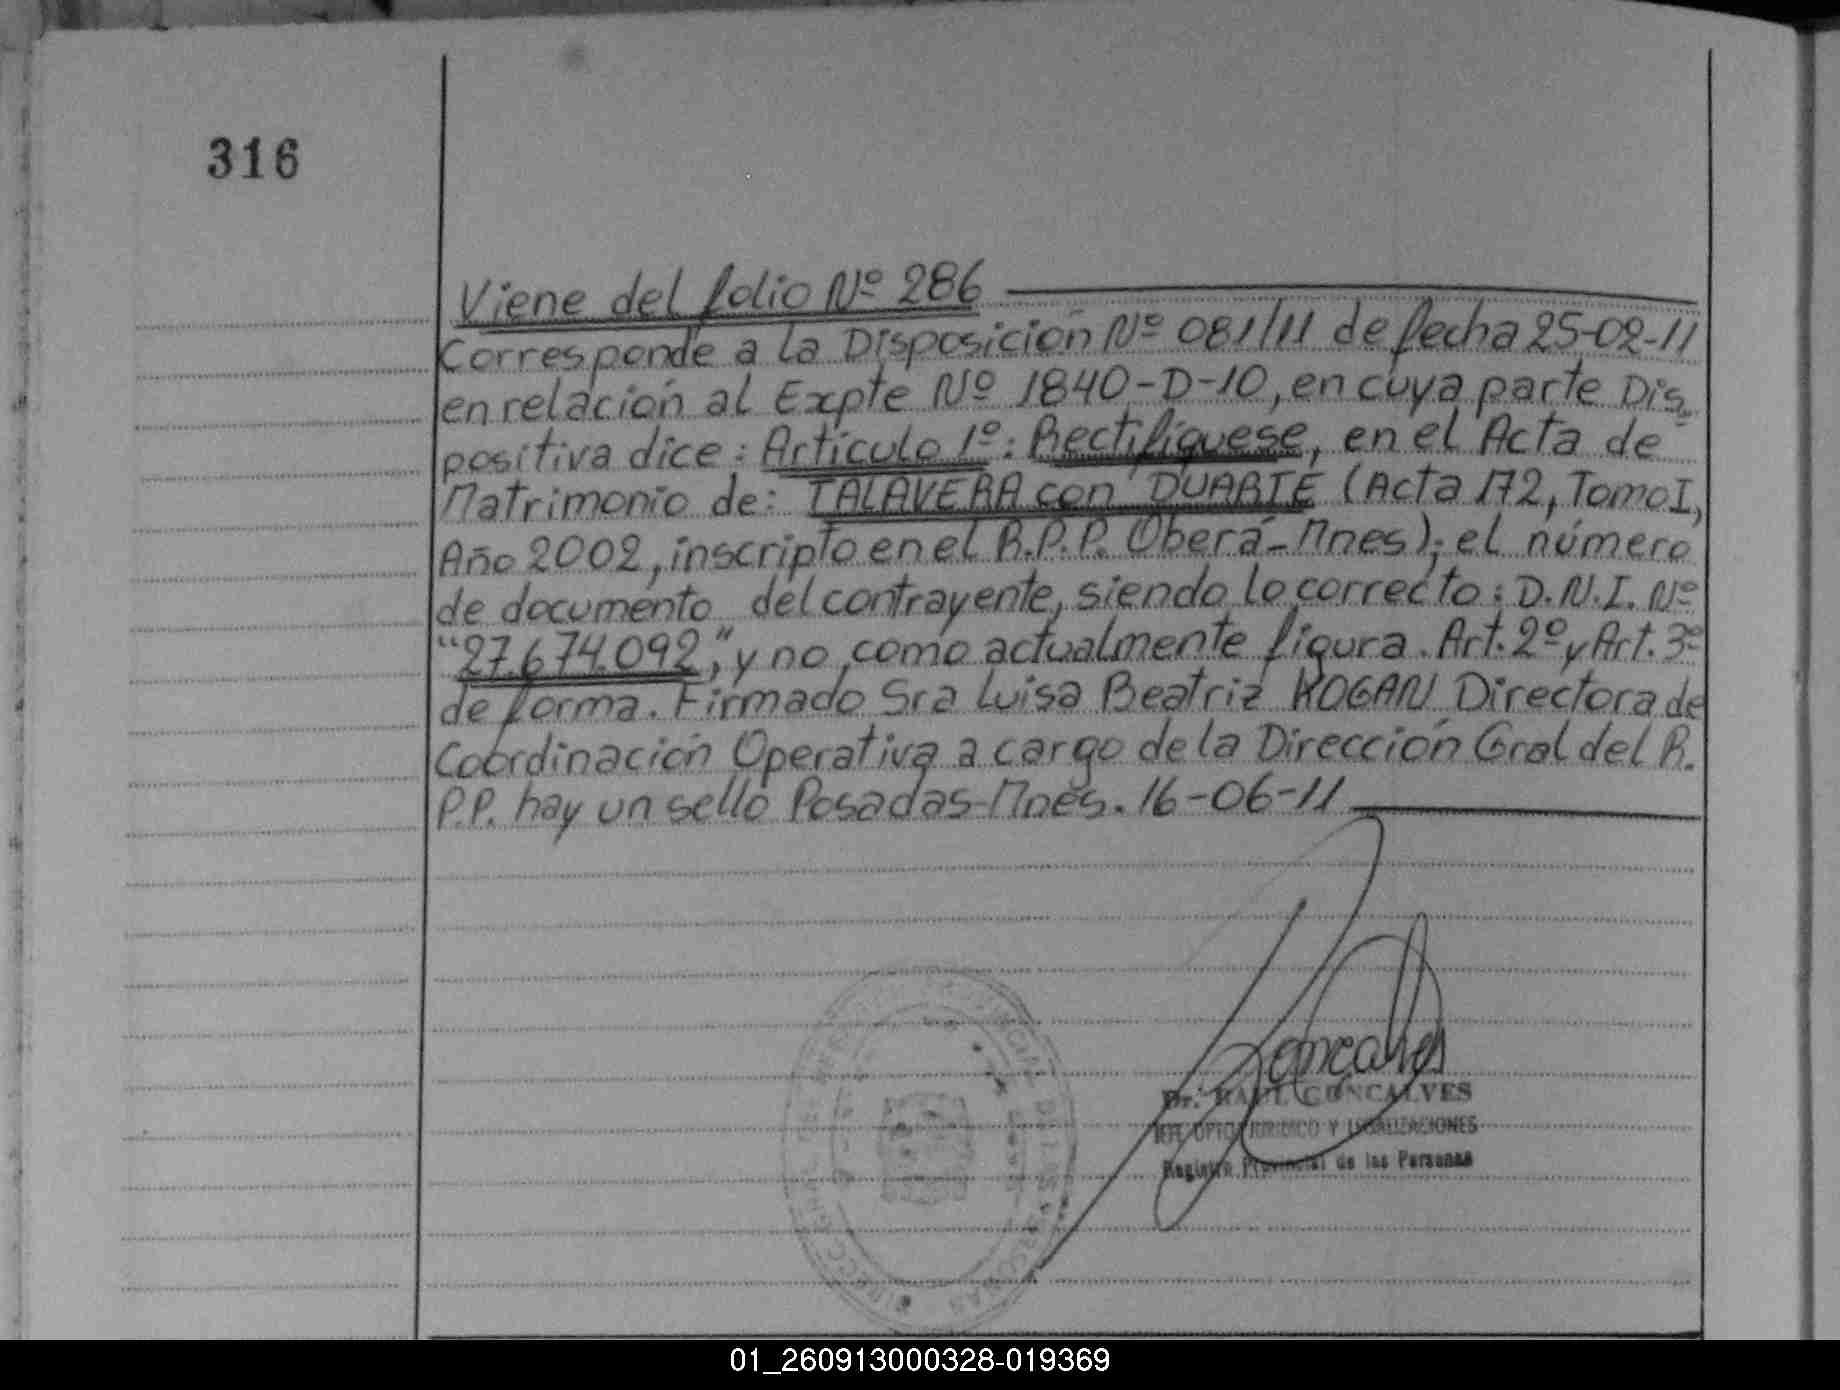 316
Viene del folio Nº 286
Corresponde a la Disposición Nº 081/11 de fecha 25-02-11
en relación al Expte Nº 1840-D-10, en cuya parte Dis
positiva dice: Artículo 1º: Rectifíquese, en el Acta de
Matrimonio de: TALAVERA con DUARTE (Acta 172, Tomo I,
Año 2002, inscripto en el R.P.P. Oberá-Mnes); el número
de documento del contrayente, siendo lo correcto: D.N.I. Nº
"27.674.092", y no como actualmente figura. Art. 2º y Art. 3º
de forma. Firmado Sra Luisa Beatriz KOGAN Directora de
Coordinación Operativa a cargo de la Dirección Gral del R.
P.P. hay un sello Posadas-Mnes. 16-06-11
Goncalves
Dr. RAUL GONCALVES
DPTO. JURIDICO Y LEGALIZACIONES
Registro Provincial de las Personas
01_260913000328-019369